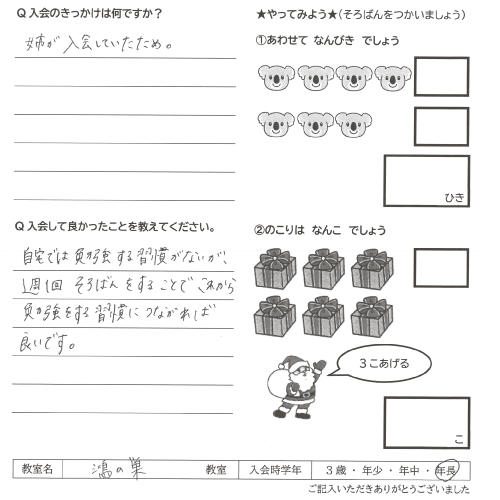 Q入会のきっかけは何ですか?
姉が入会していたため。
Q入会して良かったことを教えてください。
自宅では勉強する習慣がないが、
週1回そろばんをすることでこれから
勉強をする習慣につながれば
良いです。
★やってみよう★(そろばんをつかいましょう)
①あわせて なんびき でしょう
ひき
②のこりは なんこ でしょう
3こあげる
こ
教室名 鴻の巣 教室 入会時学年 3歳・年少・年中・年長
ご記入いただきありがとうございました